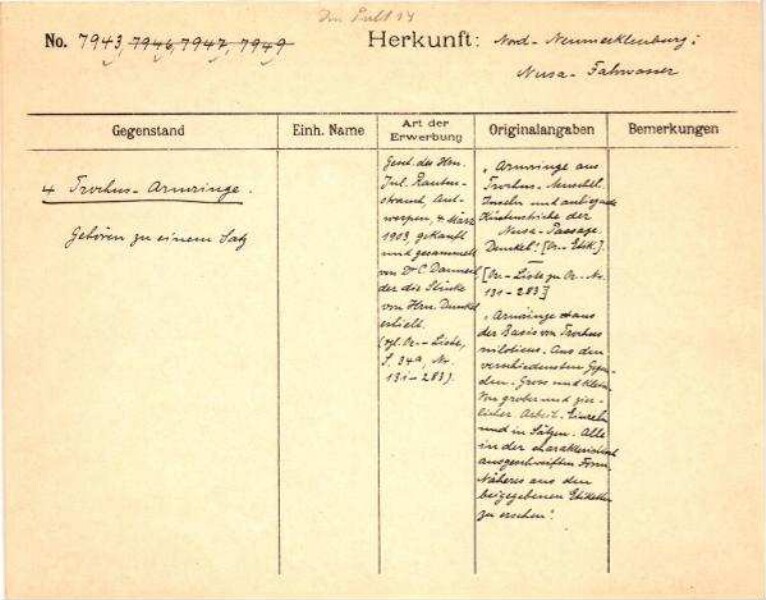 Im Pult 14
No. 7943, 7946, 7947, 7949
Herkunft: Nord-Neumecklenburg;
Nusa-Fahrwasser
Gegenstand
Einh. Name
Art der
Erwerbung
Originalangaben
Bemerkungen
4 Trochus-Armringe.
Gehören zu einem Satz
Gesch. des Hrn.
Jul. Rauten-
strauch, Ant-
werpen, 4. März
1903, gekauft
und gesammelt
von Dr C. Danneil
der die Stücke
von Hrn. Dunkel
erhielt.
(vgl. Or.-Liste,
S. 34a, Nr.
131-283).
„Armringe aus
Trochus-Muschel.
Inseln und anliegende
Küstenstriche der
Nusa-Passage.
Dunkel". [Or.-Etik.].
[Or.-Liste zu Or.-Nr.
131-283]
„Armringe aus
der Basis von Trochus
niloticus. Aus den
verschiedensten Gegen-
den. Gross und klein.
Von grober und zier-
licher Arbeit. Einzeln
und in Sätzen. Alle
in der charakteristisch
ausgeschweiften Form.
Näheres aus den
beigegebenen Etiketten
zu ersehen".